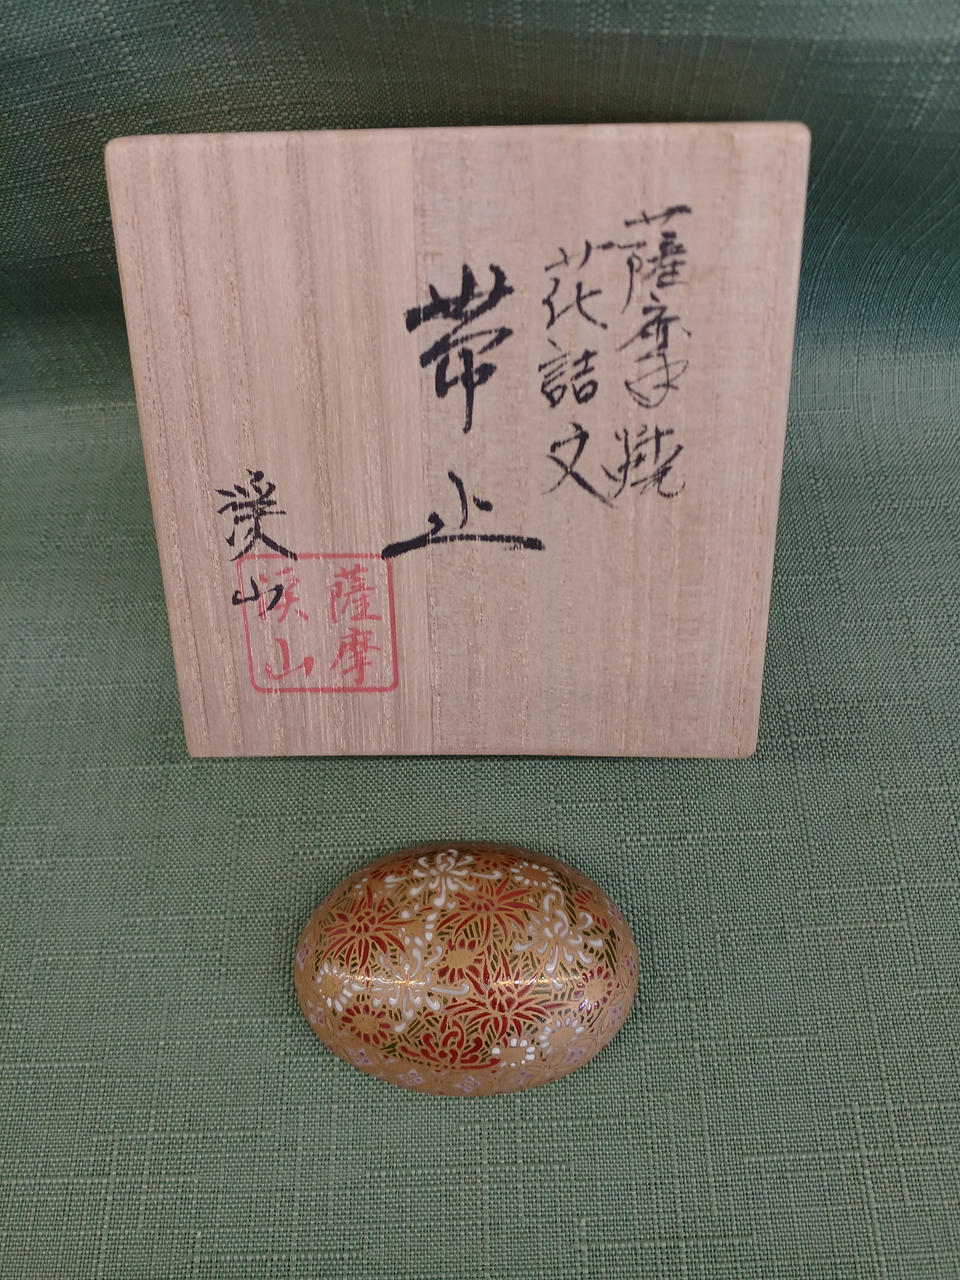 薩摩焼
花詰文
帯止
渓山
薩摩
渓山